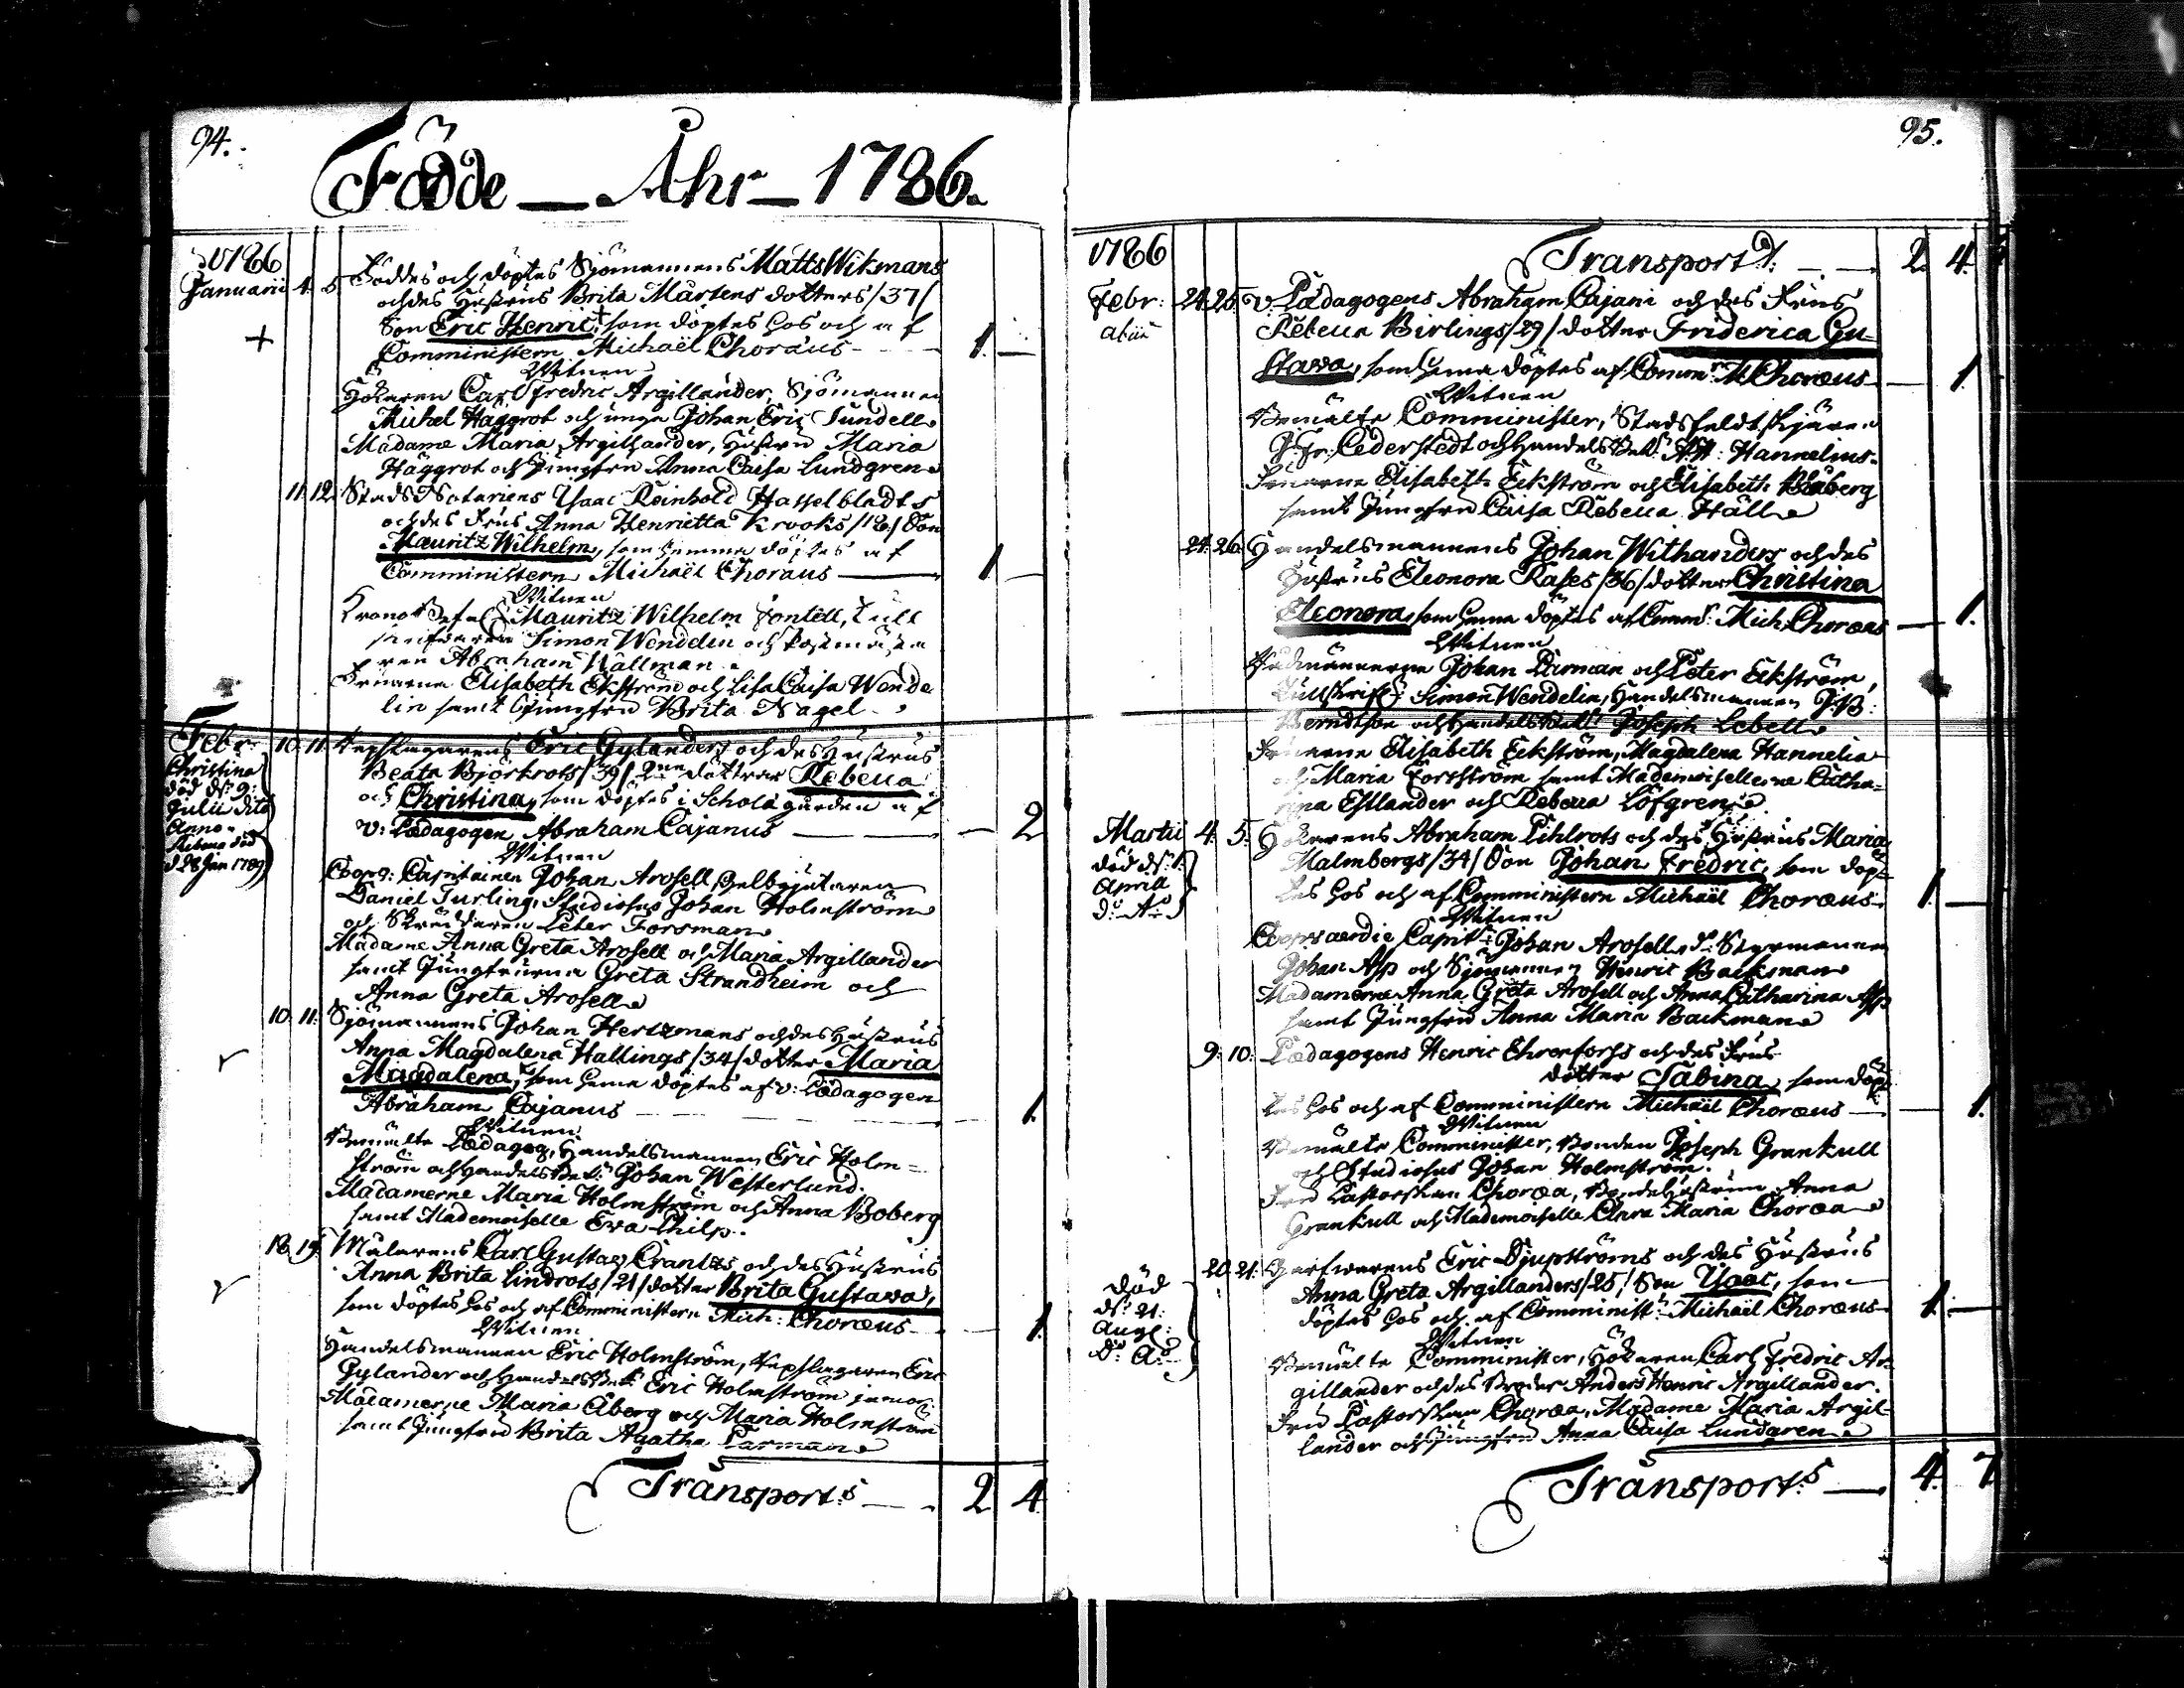 94.
Födde — Åhr — 1786.
1786
Januarii 4. 5. Föddes och döptes Sjömannens Matts Wikmans
och des Hustrus Brita Mårtens dotters /37/
Son Eric Henric, som döptes hos och af
Comministern Michaël Choræus — 1. —
Witnen
Hökaren Carl Fredric Argillander, Sjömannen
Michel Häggrot och unge Johan Eric Sundell
Madame Maria Argillander, Hustru Maria
Häggrot och Jungfru Anna Caisa Lundgren
11. 12. Stads Notariens Isaac Reinhold Hasselbladts
och des Frus Anna Henrietta Krooks Son
Mauritz Wilhelm, som hemma döptes af
Comministern Michaël Choræus — 1 —
Witnen
Mauritz Wilhelm Fontell, Tull
Simon Wendelin och Postmästa
ren Abraham Wallman
Fruarna Elisabeth Ekström och Lisa Caisa Wende
lin samt Jungfru Brita Nagel
Febr. 10. 11. Repslagarens Eric Gylanders och des Hustrus
Beata Björkrots /39/ 2ne döttrar Rebecca
och Christina, som döptes i Schola gården af
v: Pædagogen Abraham Cajanus — — 2
Christina
död d. 9:
Julii dito
Anno.
Rebecca död
d 28 Jan 1789
Witnen
Capitainen Johan Arosell, Gelbgjutaren
Daniel Turling, Studiosus Johan Holmström
och Skräddaren Peter Forsman
Madame Anna Greta Arosell och Maria Argillander
samt Jungfruerna Greta Strandheim och
Anna Greta Arosell
10. 11. Sjömannens Johan Hertzmans och des Hustrus
Anna Magdalena Hallings /34/ dotter Maria
Magdalena, som hema döptes af v: Pædagogen
Abraham Cajanus — 1.
Witnen
Bemälte Pædagog, Handelsmannen Eric Holm=
ström och Handels Bet: Johan Westerlund.
Madamerne Maria Holmström och Anna Boberg
samt Mademoiselle Eva Philp.
18. 19. Målarens Carl Gustaf Crantzs och des Hustrus
Anna Brita Lindrots /21/ dotter Brita Gustava,
som döptes hos och af Comministern Mich: Choræus — 1.
Witnen
Handelsmannen Eric Holmström, Repslagaren Eric
Gylander och Handels Bet: Eric Holmström junior
Madamerne Maria Åberg och Maria Holmström
samt Jungfru Brita Agatha Parman
Transport:s — 2 4.
95.
1786 Transport:t — 2. 4.
Febr: 24. 25. v: Pædagogens Abraham Cajani och des Frus
Rebecca Birlings /29/ dotter Friderica Gu=
stava, som hema döptes af Comm:r M. Choræus — 1.
Witnen
Bemälte Comminister, Stads Feldtskjären
J. Fr: Cederstedt och Handels Bet: A. H: Hannelius.
Fruarna Elisabeth Eckström och Elisabeth Blåberg
samt Jungfru Caisa Rebecca Häll
24. 26. Handelsmannens Johan Withanders och des
Hustrus Eleonora Rases /36/ dotter Christina
Eleonora, som hema döptes af Comm: Mich: Choræus — 1.
Witnen
Rådmännerne Johan Parman och Peter Eckström,
Tullskrif: Simon Wendelin, Handelsmannen
Berndtson och Handels Bet: Joseph Lebell
Fruarna Elisabeth Eckström, Magdalena Hannelia
och Maria Forsström samt Mademoisellerne Catha=
rina Estlander och Rebecca Löfgren
Martii 4. 5. Hökarens Abraham Pihlrots och des Hustrus Maria
Malmbergs /34/ Son Johan Fredric, som döp=
tes hos och af Comministern Michaël Choræus 1. —
död d. 1:
Aprill
d:o A:o
Witnen
Capit: Johan Arosell, Styrmannen
Johan Asp och Sjömannen Henric Backman
Madamerne Anna Greta Arosell och Anna Catharina Asp
samt Jungfru Anna Maria Backman
9. 10. Pædagogens Henric Ehrenforss och des Frus
dotter Sabina, som döp
tes hos och af Comministern Michaël Choræus — 1.
Witnen
Bemälte Comminister, Bonden Joseph Grankull
och Studiosus Johan Holmström.
Fru Pastorskan Choræa, Bonde Hustrun Anna
Grankull och Mademoiselle Anna Maria Choræa
20. 21. Garfwarens Eric Djupströms och des Hustrus
Anna Greta Argillanders /25/ Son Isaac, som
döptes hos och af Comminist: Michaël Choræus 1. —
död
d: 21:
Aug:
d:o A:o
Witnen
Bemälte Comminister, Hökaren Carl Fredric Ar=
gillander och des Broder Anders Henric Argillander.
Fru Pastorskan Choræa, Madame Maria Argil=
lander och Jungfru Anna Caisa Lundgren
Transport:s — 4. 7